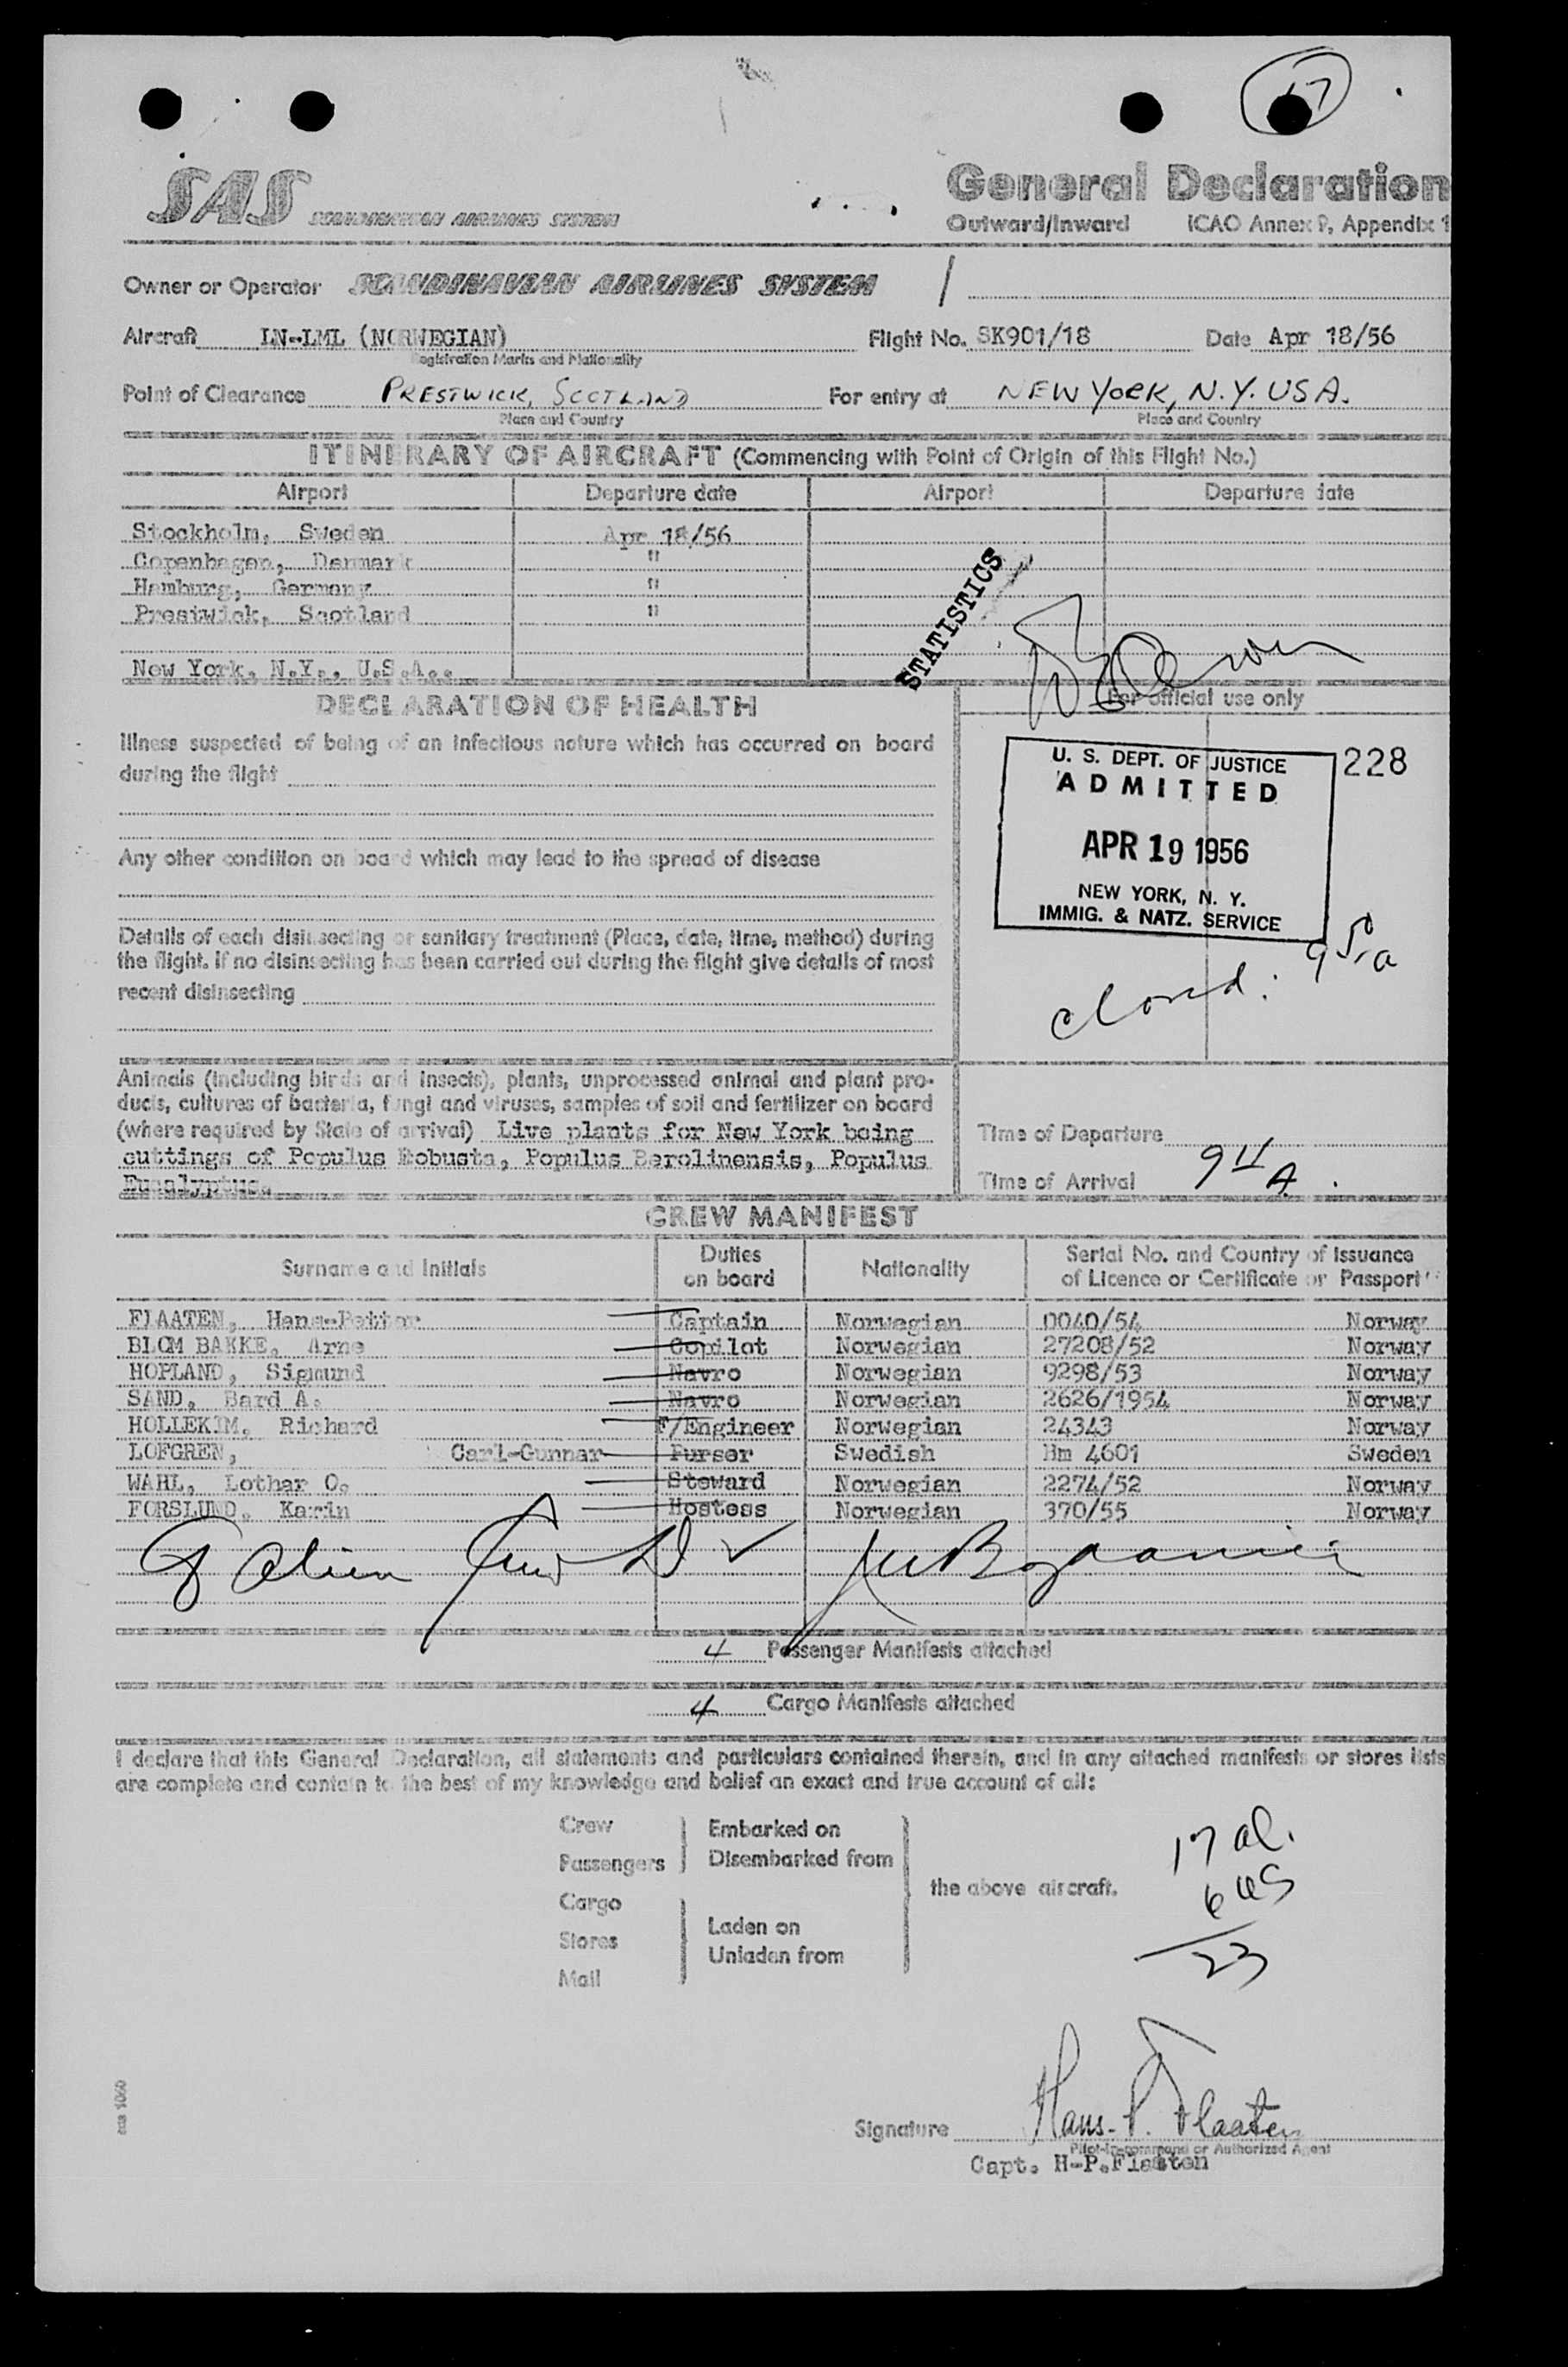 17
SAS SCANDINAVIAN AIRLINES SYSTEM
General Declaration
Outward/Inward ICAO Annex 9, Appendix 1
Owner or Operator SCANDINAVIAN AIRLINES SYSTEM
Aircraft LN-LML (NORWEGIAN) Flight No. SK901/18 Date Apr 18/56
Registration Marks and Nationality
Point of Clearance PRESTWICK, SCOTLAND For entry at NEW YORK, N.Y. USA.
Place and Country Place and Country
ITINERARY OF AIRCRAFT (Commencing with Point of Origin of this Flight No.)
Airport Departure date Airport Departure date
Stockholm, Sweden Apr 18/56
Copenhagen, Denmark "
Hamburg, Germany "
Prestwick, Scotland "
New York, N.Y., U.S.A..
STATISTICS
DECLARATION OF HEALTH
For official use only
Illness suspected of being of an infectious nature which has occurred on board
during the flight
U. S. DEPT. OF JUSTICE
ADMITTED
APR 19 1956
NEW YORK, N. Y.
IMMIG. & NATZ. SERVICE
228
Any other condition on board which may lead to the spread of disease
Details of each disinsecting or sanitary treatment (Place, date, time, method) during
the flight. If no disinsecting has been carried out during the flight give details of most
recent disinsecting
closed: 9 50 a
Animals (including birds and insects), plants, unprocessed animal and plant pro-
ducts, cultures of bacteria, fungi and viruses, samples of soil and fertilizer on board
(where required by State of arrival) Live plants for New York being
cuttings of Populus Robusta, Populus Berolinensis, Populus
Eucalyptus.
Time of Departure
Time of Arrival 9 11 A.
CREW MANIFEST
Surname and Initials Duties on board Nationality Serial No. and Country of Issuance of Licence or Certificate or Passport
FLAATEN, Hans-Petter Captain Norwegian 0040/54 Norway
BLOM BAKKE, Arne Copilot Norwegian 27208/52 Norway
HOPLAND, Sigmund Navro Norwegian 9298/53 Norway
SAND, Bard A. Navro Norwegian 2626/1954 Norway
HOLLEKIM, Richard F/Engineer Norwegian 24343 Norway
LOFGREN, Carl-Gunnar Purser Swedish Hm 4601 Sweden
WAHL, Lothar O. Steward Norwegian 2274/52 Norway
FORSLUND, Karin Hostess Norwegian 370/55 Norway
8 alien
4 Passenger Manifests attached
4 Cargo Manifests attached
I declare that this General Declaration, all statements and particulars contained therein, and in any attached manifests or stores lists
are complete and contain to the best of my knowledge and belief an exact and true account of all:
Crew
Passengers
Embarked on
Disembarked from
Cargo
Stores
Mail
Laden on
Unladen from
the above aircraft.
17 al.
6 US
23
Signature Hans-P. Flaaten
Pilot-in-command or Authorized Agent
Capt. H-P.Flaaten